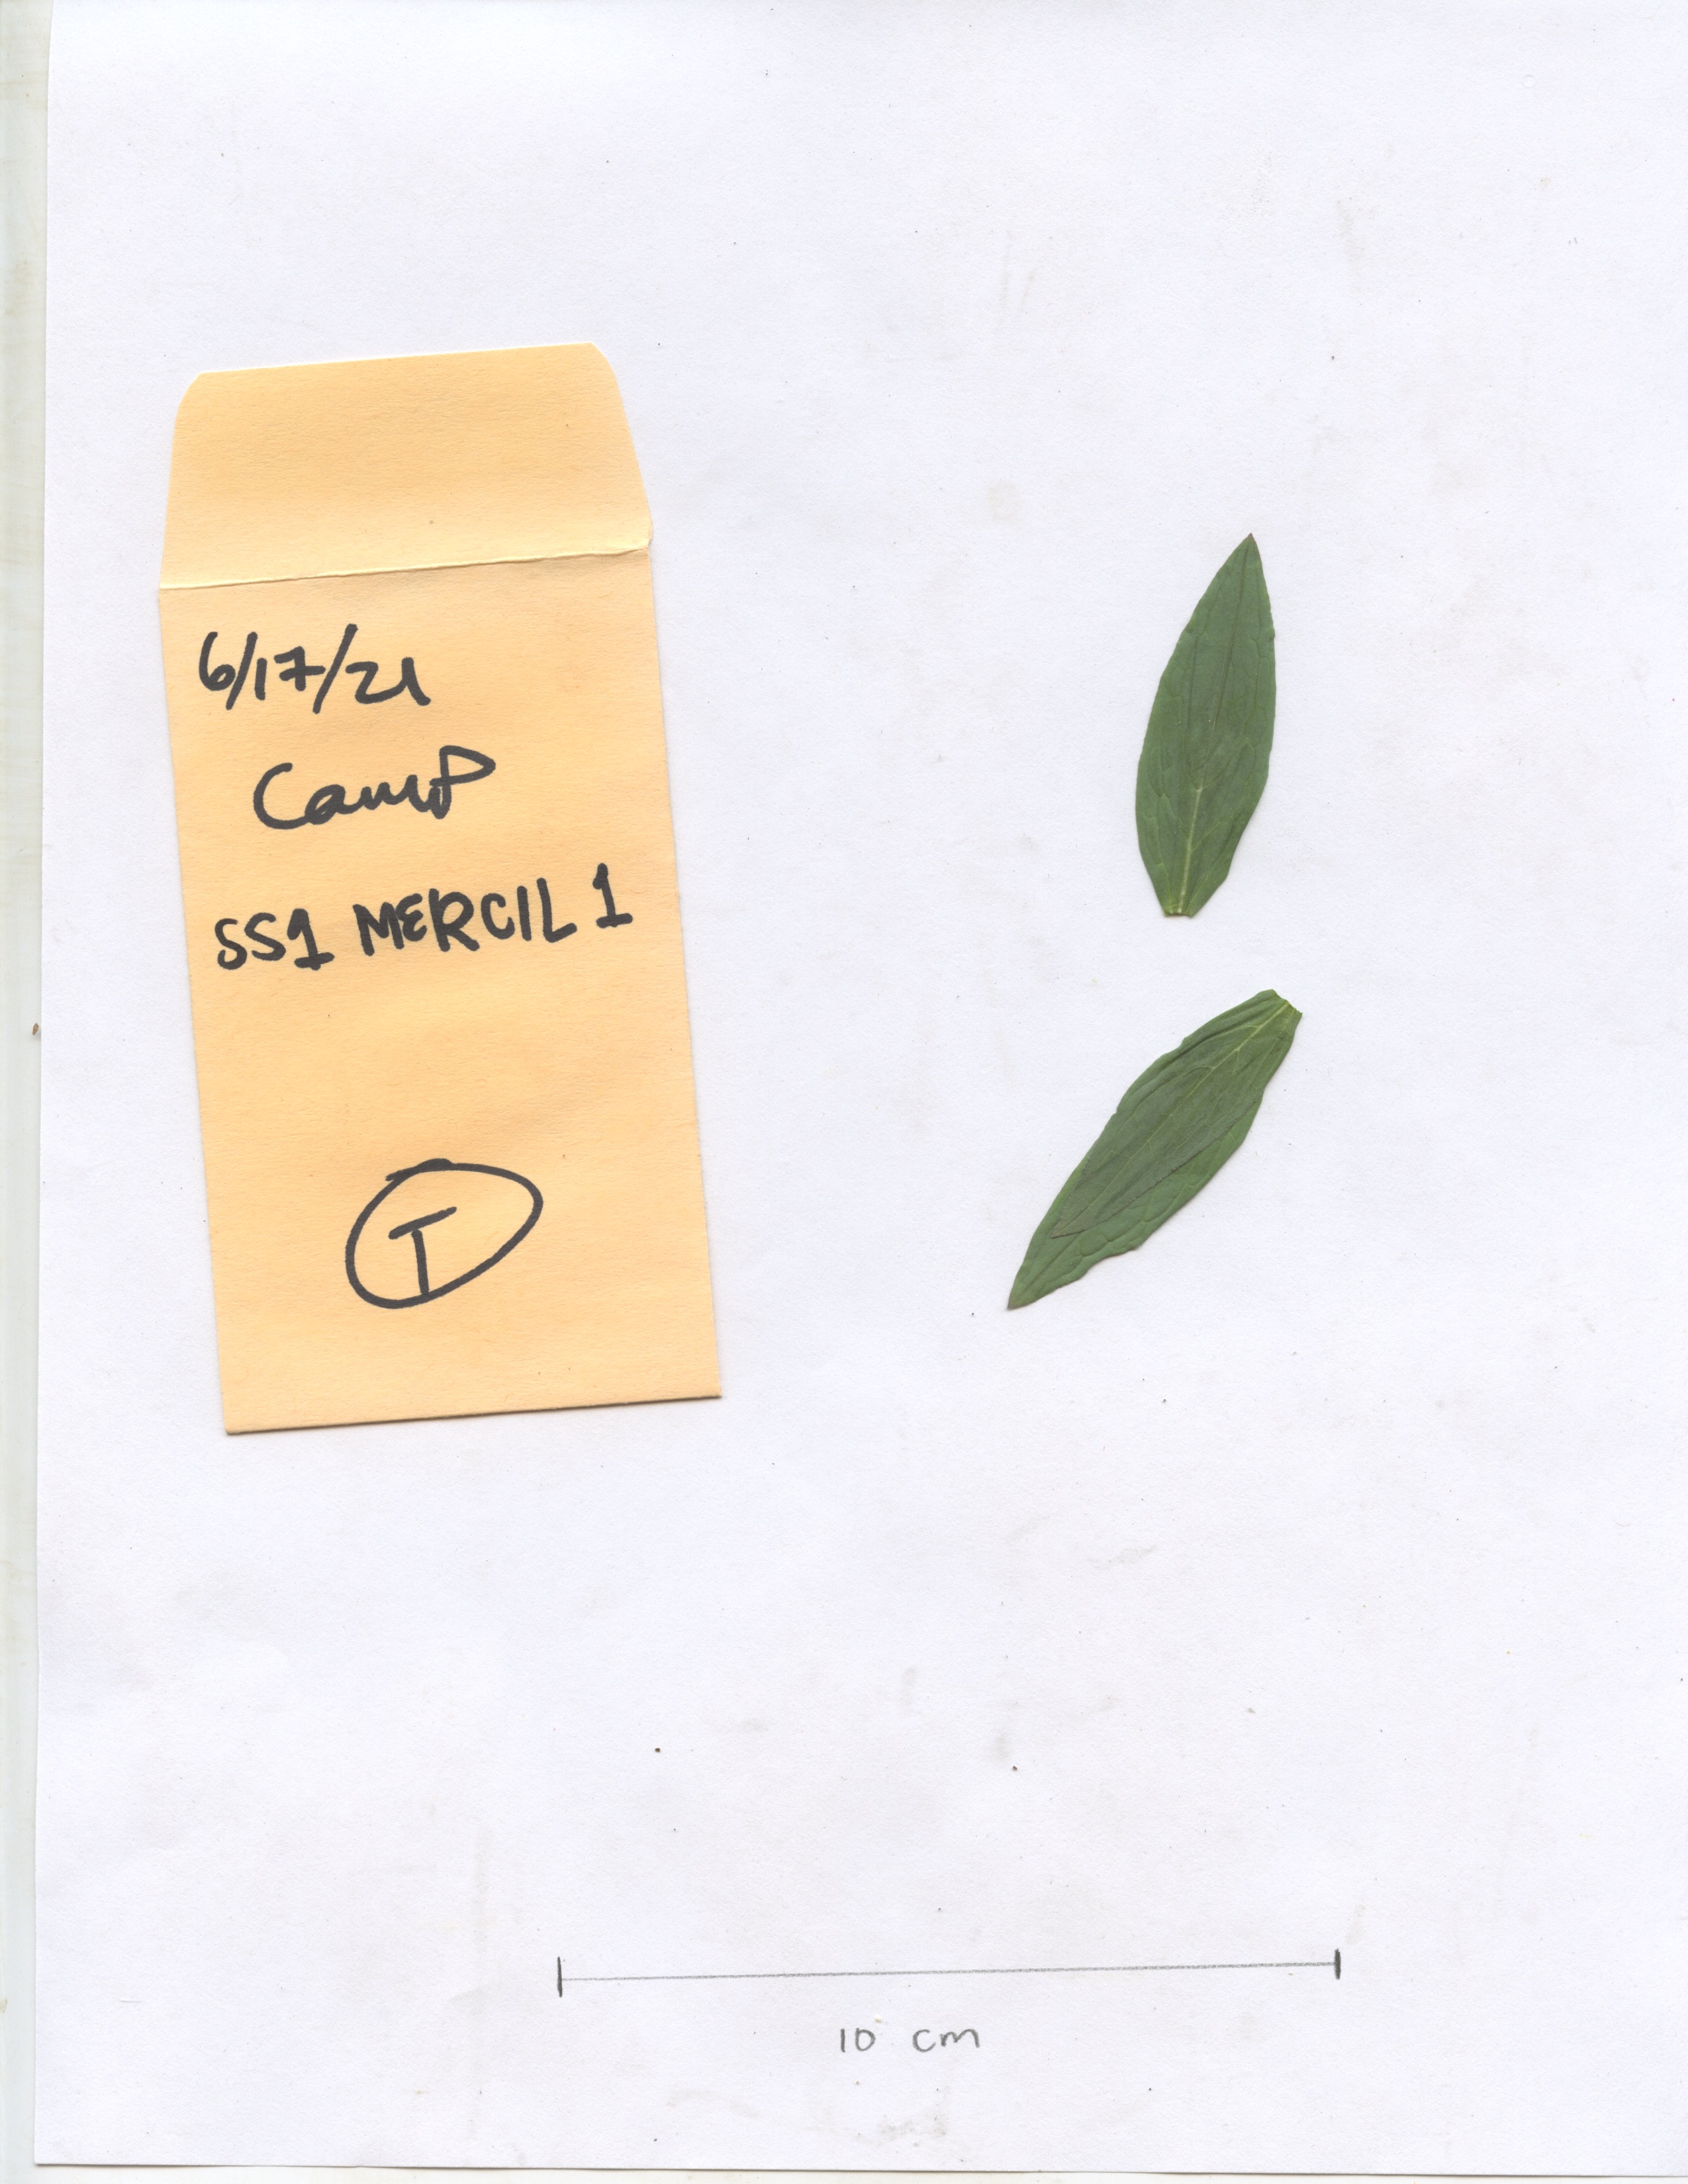 6/17/21
Camp
SS1 MERCIL 1
T
10 cm